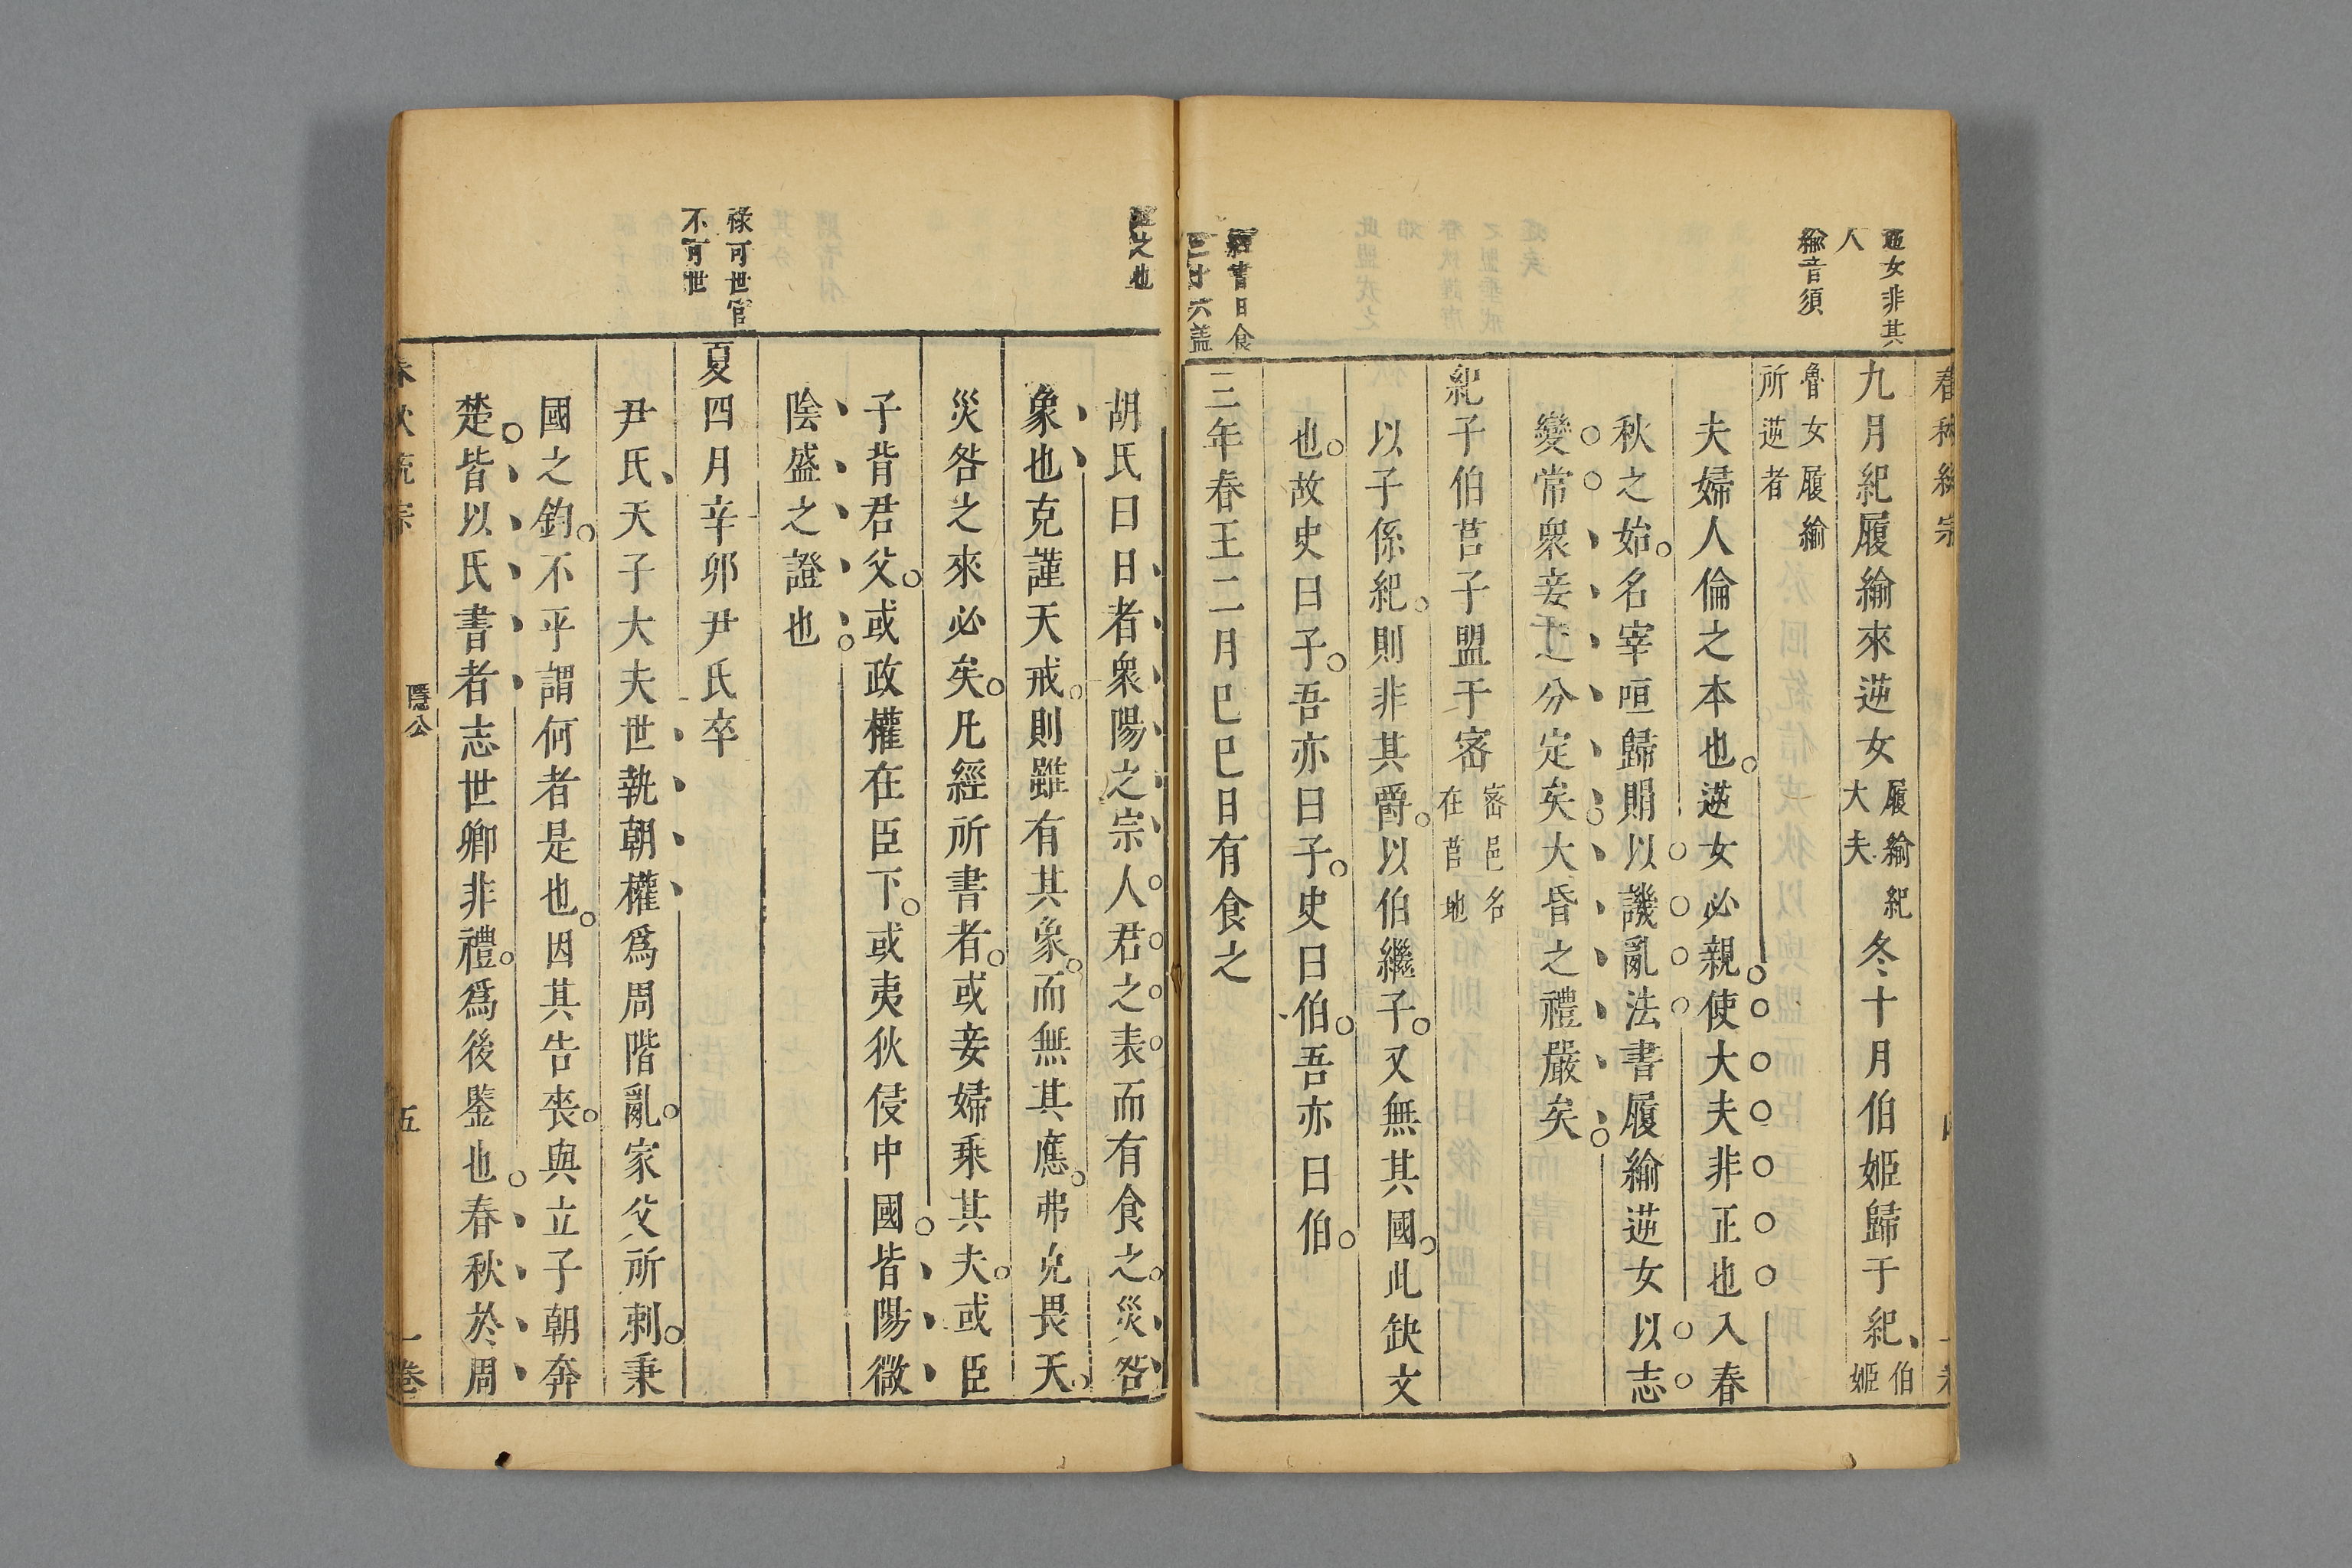 女非其
人
綸音須
九月紀履綸來逆女履綸紀大夫冬十月伯姬歸于紀伯姬
魯女履綸所逆者
夫婦人倫之本也逆女必親使大夫非正也入春
秋之始名宰咺歸賵以譏亂法書履綸逆女以志
變常衆妾之分定矣大昏之禮嚴矣
紀子伯莒子盟于密密邑名在莒地
以子係紀則非其爵以伯繼子又無其國此缺文
也故史曰子吾亦曰子史曰伯吾亦曰伯
經書日食
三年春王二月巳巳日有食之
之也
胡氏曰日者衆陽之宗人君之表而有食之災咎
象也克謹天戒則雖有其象而無其應弗克畏天
災咎之來必矣凡經所書者或妾婦乘其夫或臣
子背君父或政權在臣下或夷狄侵中國皆陽微
陰盛之證也
祿可世官
不可世
夏四月辛卯尹氏卒
尹氏天子大夫世執朝權爲周階亂家父所刺秉
國之鈞不平謂何者是也因其告喪與立子朝奔
楚皆以氏書者志世卿非禮爲後鑒也春秋於周
隱公
五
一卷